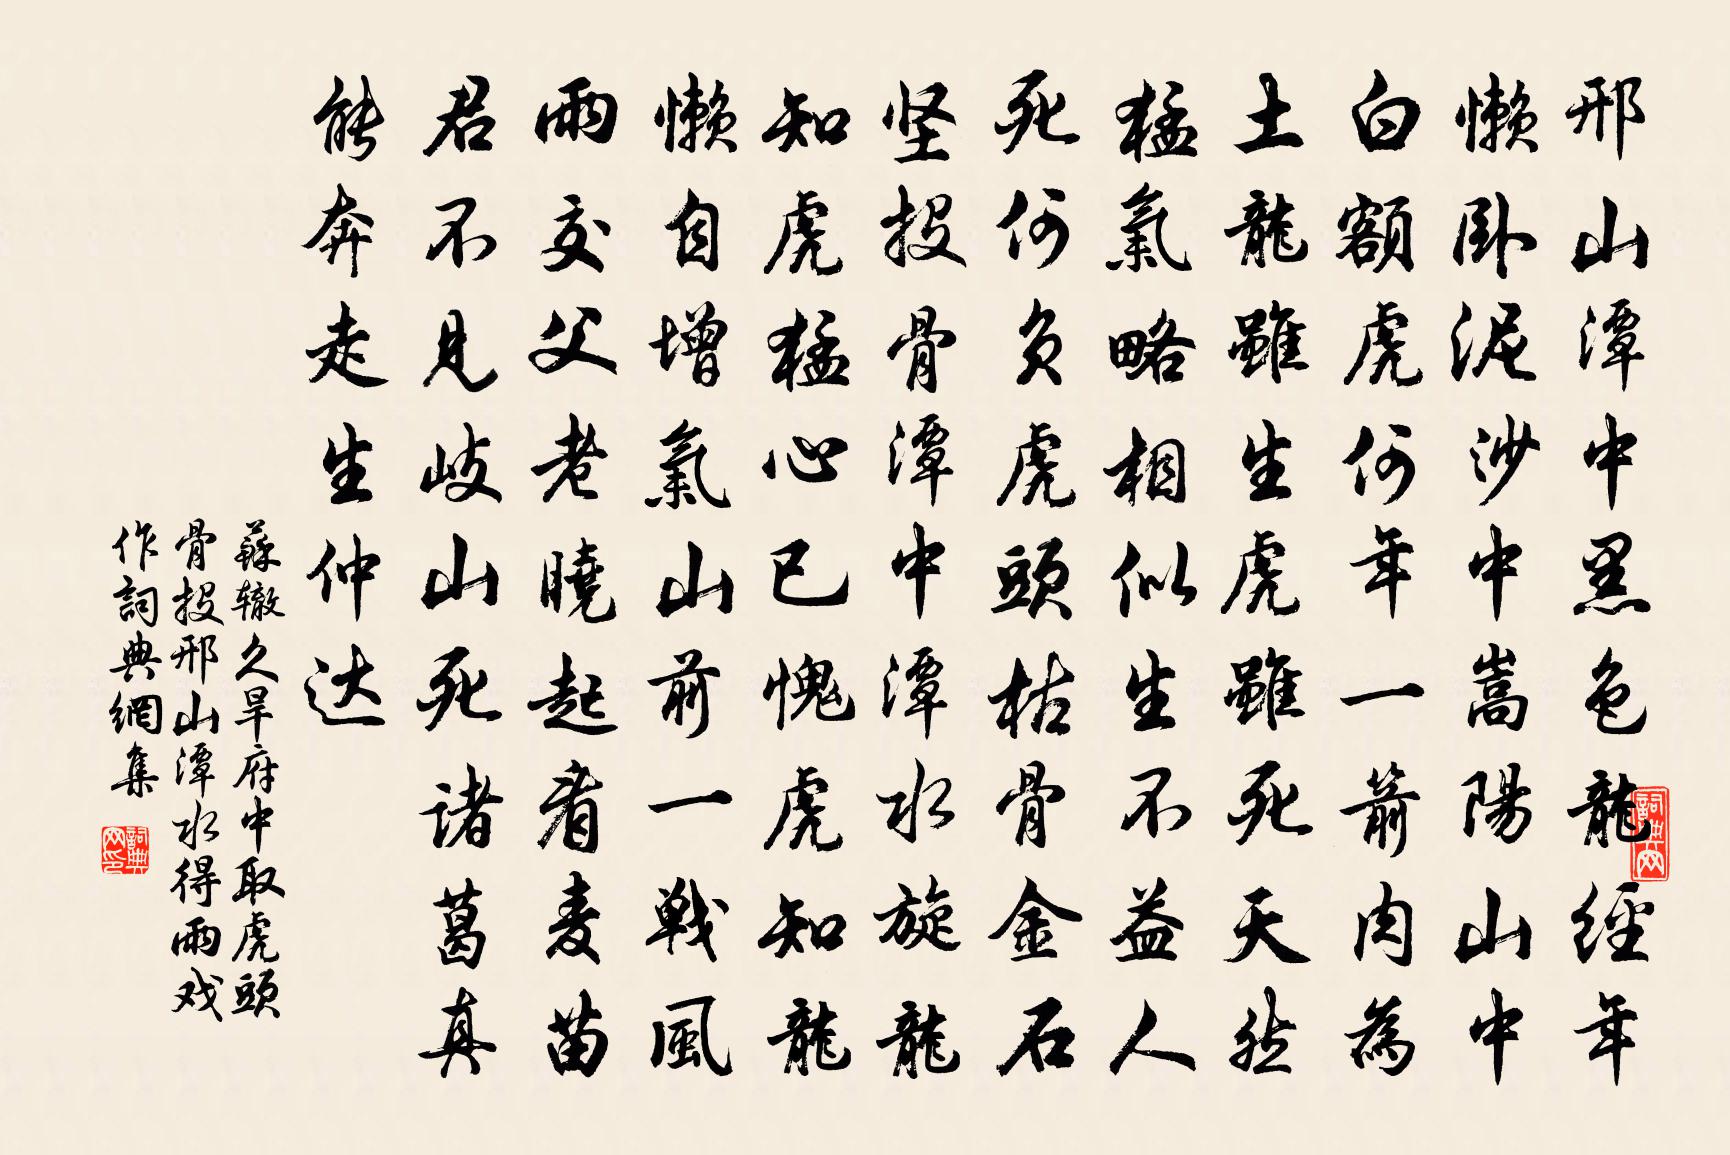 邢山潭中黑色龍經年
懶卧泥沙中嵩陽山中
白額虎何年一箭肉為
土龍雖生虎雖死天然
猛氣略相似生不益人
死何负虎頭枯骨金石
坚投骨潭中潭水旋龍
知虎猛心已愧虎知龍
懶自增氣山前一戰風
雨交父老曉起看麦苗
君不見岐山死诸葛真
能奔走生仲达
蘇辙久旱府中取虎頭
骨投邢山潭水得雨戏
作詞典網集
詞典网
詞典网印